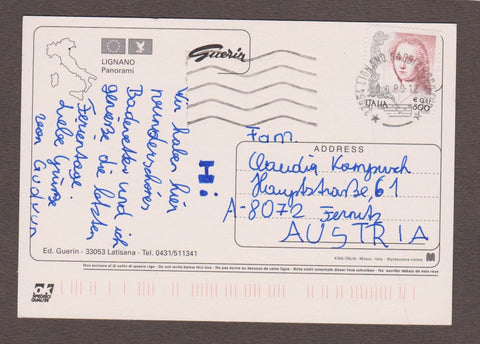 LIGNANO
Panorami
Guerin
ITALIA
800
Hi
Wir haben hier
wunderschönes
Badewetter und ich
genieße die letzten
Ferientage.
Liebe Grüße
von Gudrun
Fam.
ADDRESS
Claudia Kampusch
Hauptstraße 61
A-8072 Fernitz
AUSTRIA
Ed. Guerin - 33053 Latisana - Tel. 0431/511341
KINA ITALIA - Milano - Italy - Riproduzione vietata
Non scrivere al di sotto di questa riga - Do not write below this line - Ne pas écrire au dessous de cette ligne - Bitte nicht unterhalb dieser Linie schreiben - No escribir debajo de esta raya